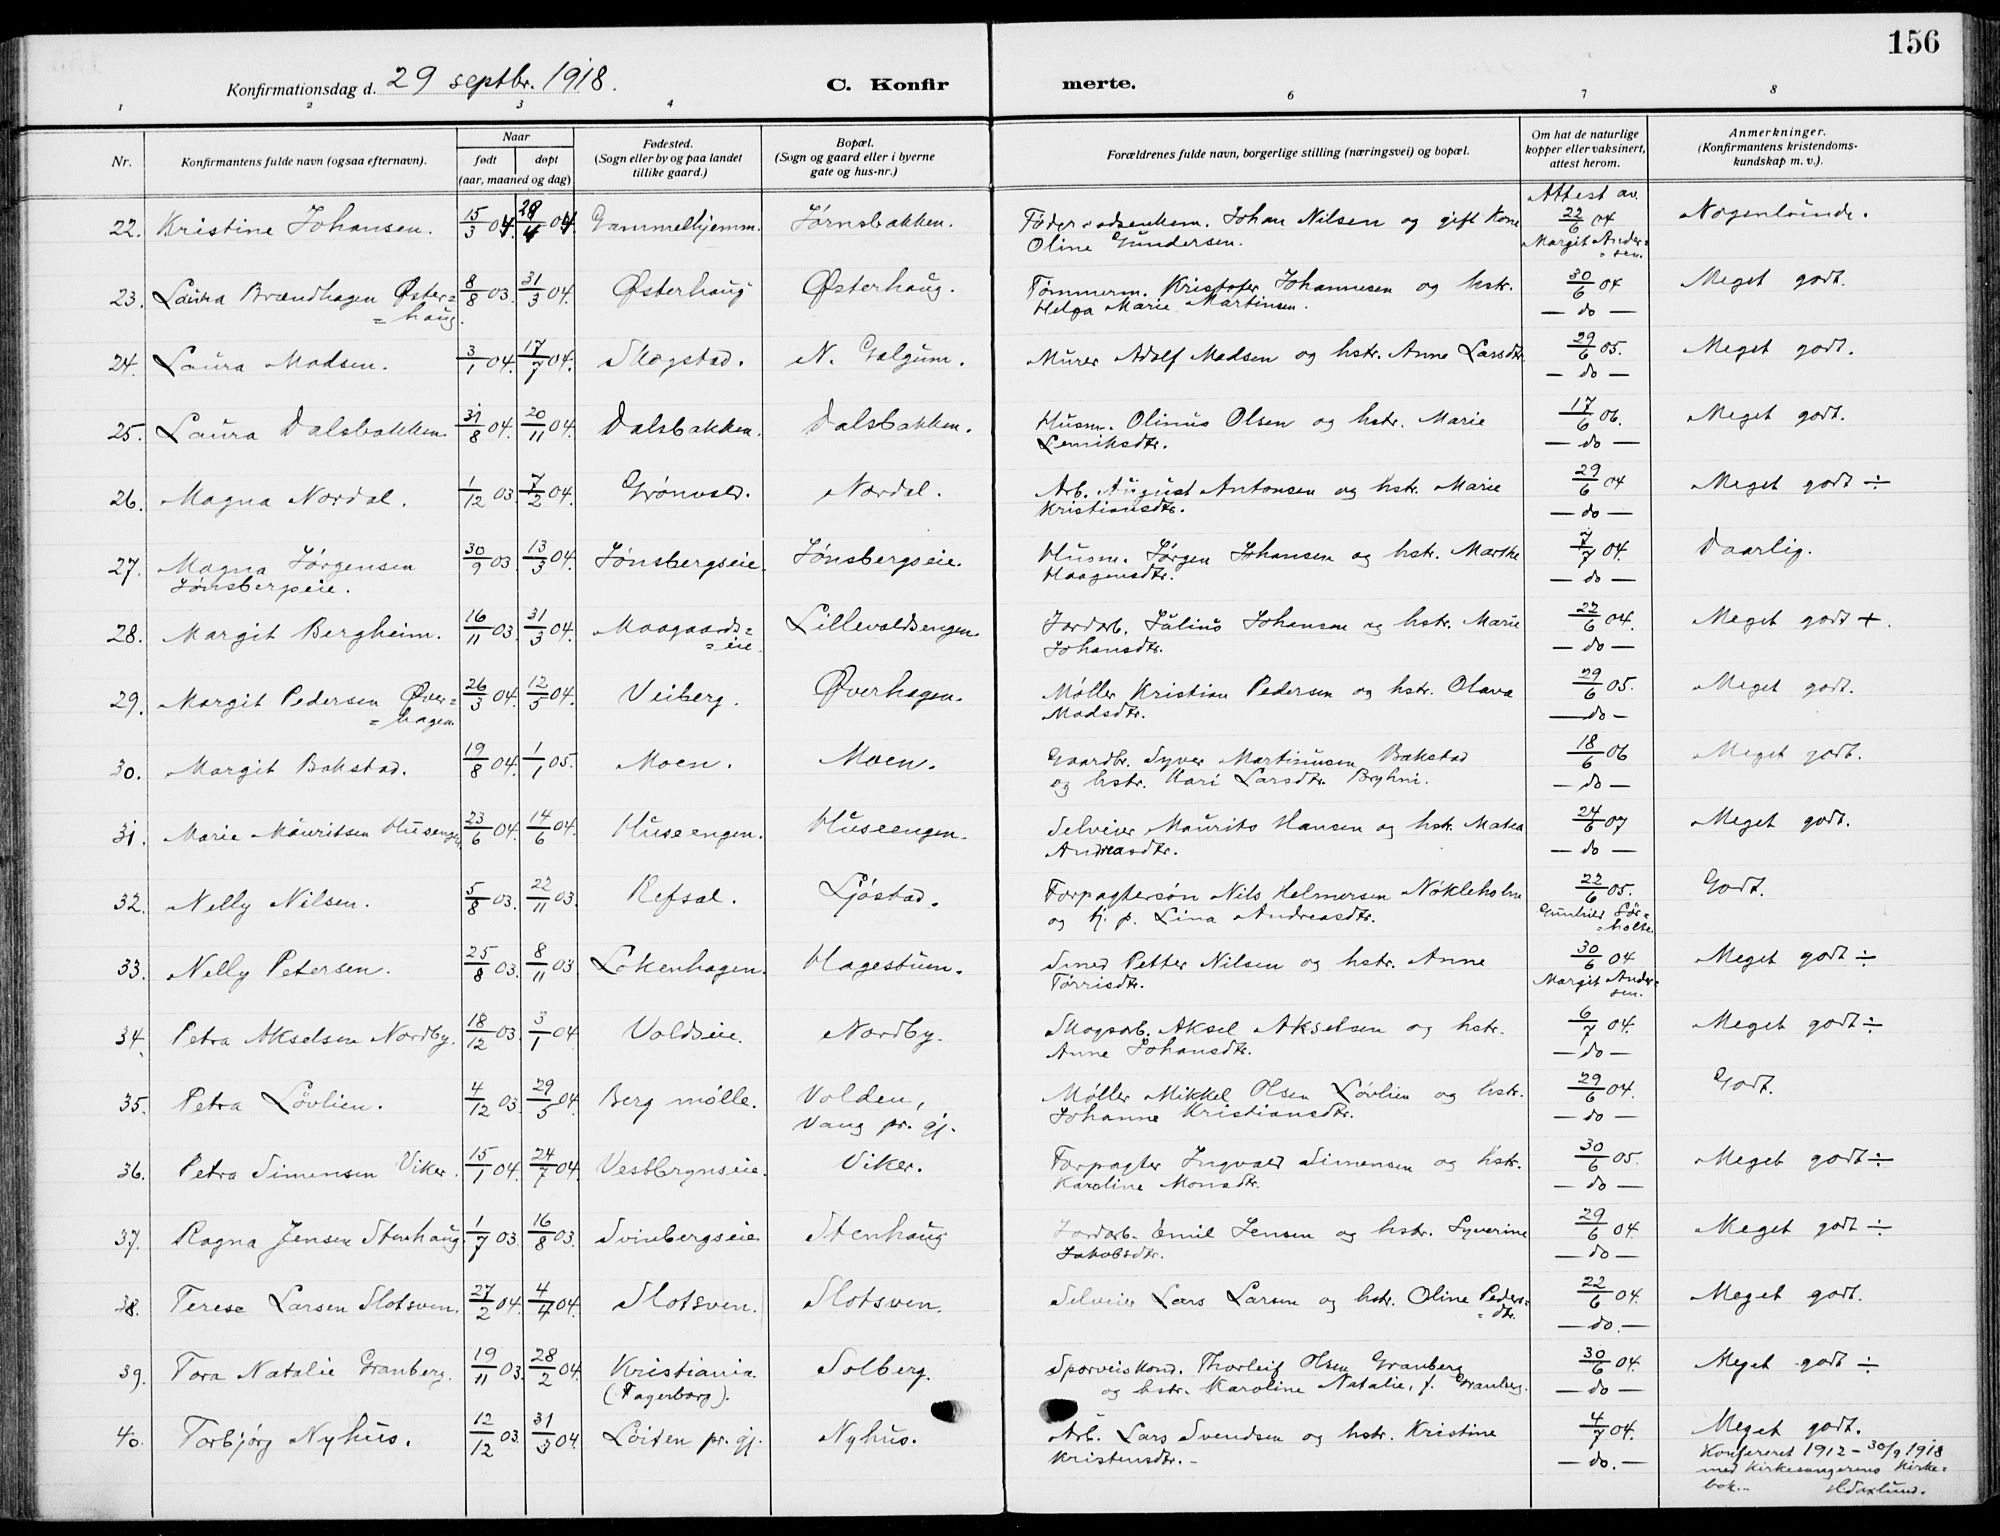 156
Konfirmationsdag d. 29 septbr. 1918.
C. Konfirmerte.
1 2 3 4 6 7 8
Nr.
Konfirmantens fulde navn (ogsaa efternavn).
Naar
født døpt
(aar, maaned og dag)
Fødested.
(Sogn eller by og paa landet
tillike gaard.)
Bopæl.
(Sogn og gaard eller i byerne
gate og hus-nr.)
Forældrenes fulde navn, borgerlige stilling (næringsvei) og bopæl.
Om hat de naturlige
kopper eller vaksinert,
attest herom.
Anmerkninger.
(Konfirmantens kristendoms-
kundskap m. v.).
Attest av
22. Kristine Johansen. 15/3 04. 04 Gammelhjemm. Jørnsbakken. Johan Nilsen og gift Kone 22/6 04 Nogenlunde.
Oline Gundersen. Margit Ander=
=sen.
23. Laura Brændhagen Øster= 8/8 03. 31/3 04. Østerhaug Østerhaug. Tømmerm. Kristofer Johannesen og hstr. 30/6 04 Meget godt.
=haug. Helga Marie Martinsen. — do —
24. Laura Madsen. 3/1 04. 17/7 04. Skogstad. N. Galgum. Murer Adolf Madsen og hstr. Anne Larsdtr. 29/6 05. Meget godt.
— do —
25. Laura Dalsbakken. 31/8 04. 20/11 04. Dalsbakken. Dalsbakken. Husm. Olinus Olsen og hstr. Marie 17/6 06. Meget godt.
— do —
26. Magna Nordal. 1/12 03. 7/2 04. Grønvold. Nordal. Arb. August Antonsen og hstr. Marie 29/6 04 Meget godt ÷
Kristiansdtr. — do —
27. Magna Jørgensen 30/9 03 13/3 04. Jønsbergseie. Jønsbergseie. Husm. Jørgen Johansen og hstr. Marthe 7/7 04. Daarlig.
Jønsbergseie. Haagensdtr. — do —
28. Margit Bergheim. 16/11 03. 31/3 04. Maagaards= Lillevoldsengen. Jordarb. Julius Johansen og hstr. Marie 22/6 04. Meget godt +.
=eie. Johansdtr. — do —
29. Margit Pedersen Øver= 26/3 04. 12/5 04. Veiberg. Øverhagen. Møller Kristian Pedersen og hstr. Olava 29/6 05. Meget godt.
=hagen Madsdtr. — do —
30. Margit Bakstad. 19/8 04. 1/1 05. Moen. Moen. Gaardbr. Syver Martinusen Bakstad 18/6 06 Meget godt.
og hstr. Kari Larsdtr. Bryhni. — do —
31. Marie Mauritsen Huseengen 23/6 04. 14/6 04. Huseengen. Huseengen. Selveier Maurits Hansen og hstr. Matea 24/6 07 Meget godt.
Andreasdtr. — do —
32. Nelly Nilsen. 5/8 03. 22/11 03. Refsal. Ljøstad. Forpagtersøn Nils Helmersen Nøkleholm 22/6 05. Godt.
og tj. p. Lina Andreasdtr. Gunhild Sør=
=holte.
33. Nelly Petersen. 25/8 03. 8/11 03 Løkenhagen. Hagestuen. Smed Petter Nilsen og hstr. Anne 30/6 04 Meget godt ÷
Torrisdtr. Margit Ander=
sen.
34. Petra Akselsen Nordby. 18/12 03. 3/1 04 Voldseie. Nordby. Skogsarb. Aksel Akselsen og hstr. 6/7 04. Meget godt ÷
Anne Johansdtr. — do —
35. Petra Løvlien. 4/12 03. 29/5 04. Berg mølle. Volden, Møller Mikkel Olsen Løvlien og hstr. 29/6 04. Godt.
Vang pr. gj. Johanne Kristiansdtr. — do —
36. Petra Simensen Viker. 15/1 04. 24/7 04. Vestbergnseie. Viker. Forpagter Ingvald Simensen og hstr. 30/6 05. Meget godt ÷
Karoline Monsdtr. — do —
37. Ragna Jensen Stenhaug. 1/7 03. 16/8 03. Svinbergseie Stenhaug Jordarb. Emil Jensen og hstr. Syverine 29/6 04. Meget godt ÷
Jakobsdtr. — do —
38. Terese Larsen Slotsven. 27/2 04. 4/4 04. Slotsven. Slotsven. Selveier Lars Larsen og hstr. Oline Peders= 22/6 04. Meget godt.
=dtr. — do. —
39. Tora Natalie Granberg. 19/11 03. 28/2 04. Kristiania Solberg. Sporveiskond. Thorleif Olsen Granberg 30/6 04. Meget godt ÷
(Fagerborg). og hstr. Karoline Natalie, f. Granberg. — do —
40. Torbjørg Nyhus. 12/12 03. 31/3 04. Løiten pr. gj. Nyhus. Arb. Lars Svendsen og hstr. Kristine 4/7 04. Meget godt.
Kristensdtr. – — do. —
Konfereret 1912 – 30/9 1918
med kirkesangerens kirke=
bok. –